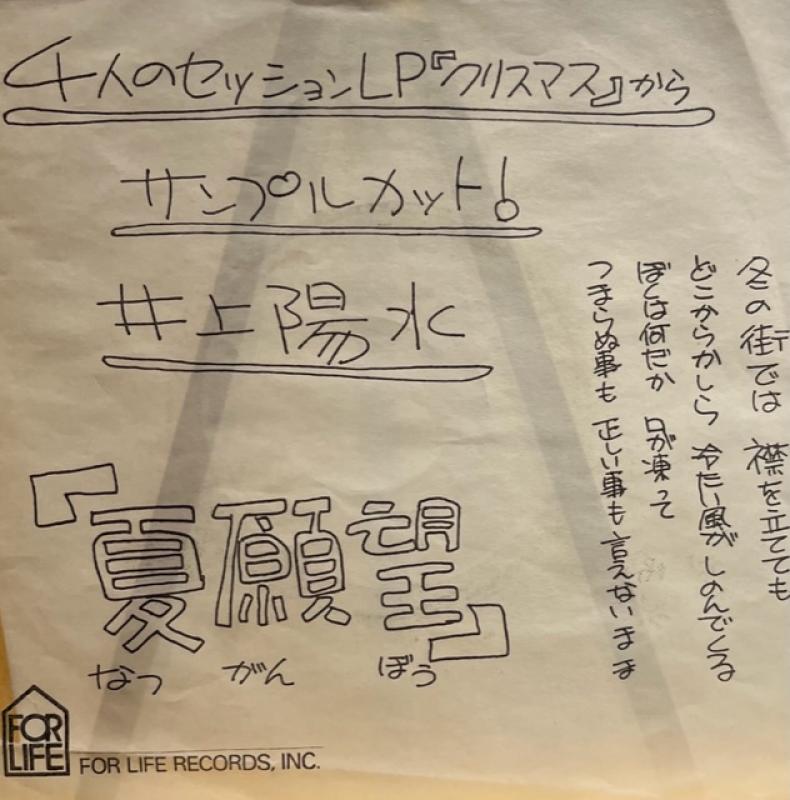 4人のセッションLP『クリスマス』から
サンプルカット!
井上陽水
『夏願望』
なつ がん ぼう
冬の街では 襟を立てても
どこからかしら 冷たい風が しのんでくる
ぼくは何だか 口が凍って
つまらぬ事も 正しい事も 言えないまま
FOR LIFE
FOR LIFE RECORDS, INC.